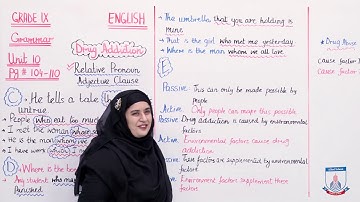 GRADE IX
ENGLISH
Grammar
Unit 10
Pg # 104-110
Drug Addiction
Relative Pronoun
Adjective Clause
C
He tells a tale
untrue.
People who eat too much
I met the woman whose
He is the man whom we
I have
D
Where is the
Any student who
Punished.
The umbrella that you are holding is
mine
That is the girl who met me yesterday.
Where is the man whom we all love.
E
Passive This can only be made possible by
people
Active Only people can make this possible
Passive Drug addiction is caused by environmental
factors
Active Environmental factors cause drug
addiction
Passive These factors are supplemented by environmental
factors
Active Environment factors supplement these
factors
Drug Abuse
Cause factor
Cause factor